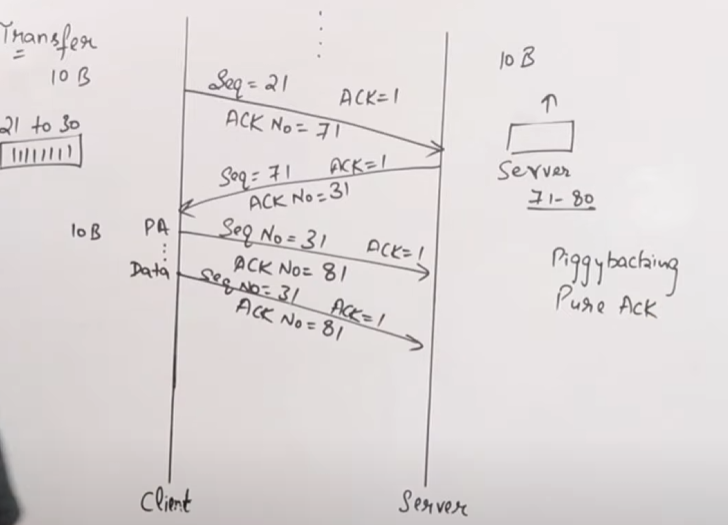 Transfer
10 B
21 to 30
Seq = 21
ACK=1
ACK No = 71
Seq = 71
ACK=1
ACK No = 31
10B
PA
Seq No = 31
ACK=1
ACK No = 81
Data
Seq No = 31
ACK=1
ACK No = 81
10 B
Server
71-80
Piggybacking
Pure ACK
Client
Server